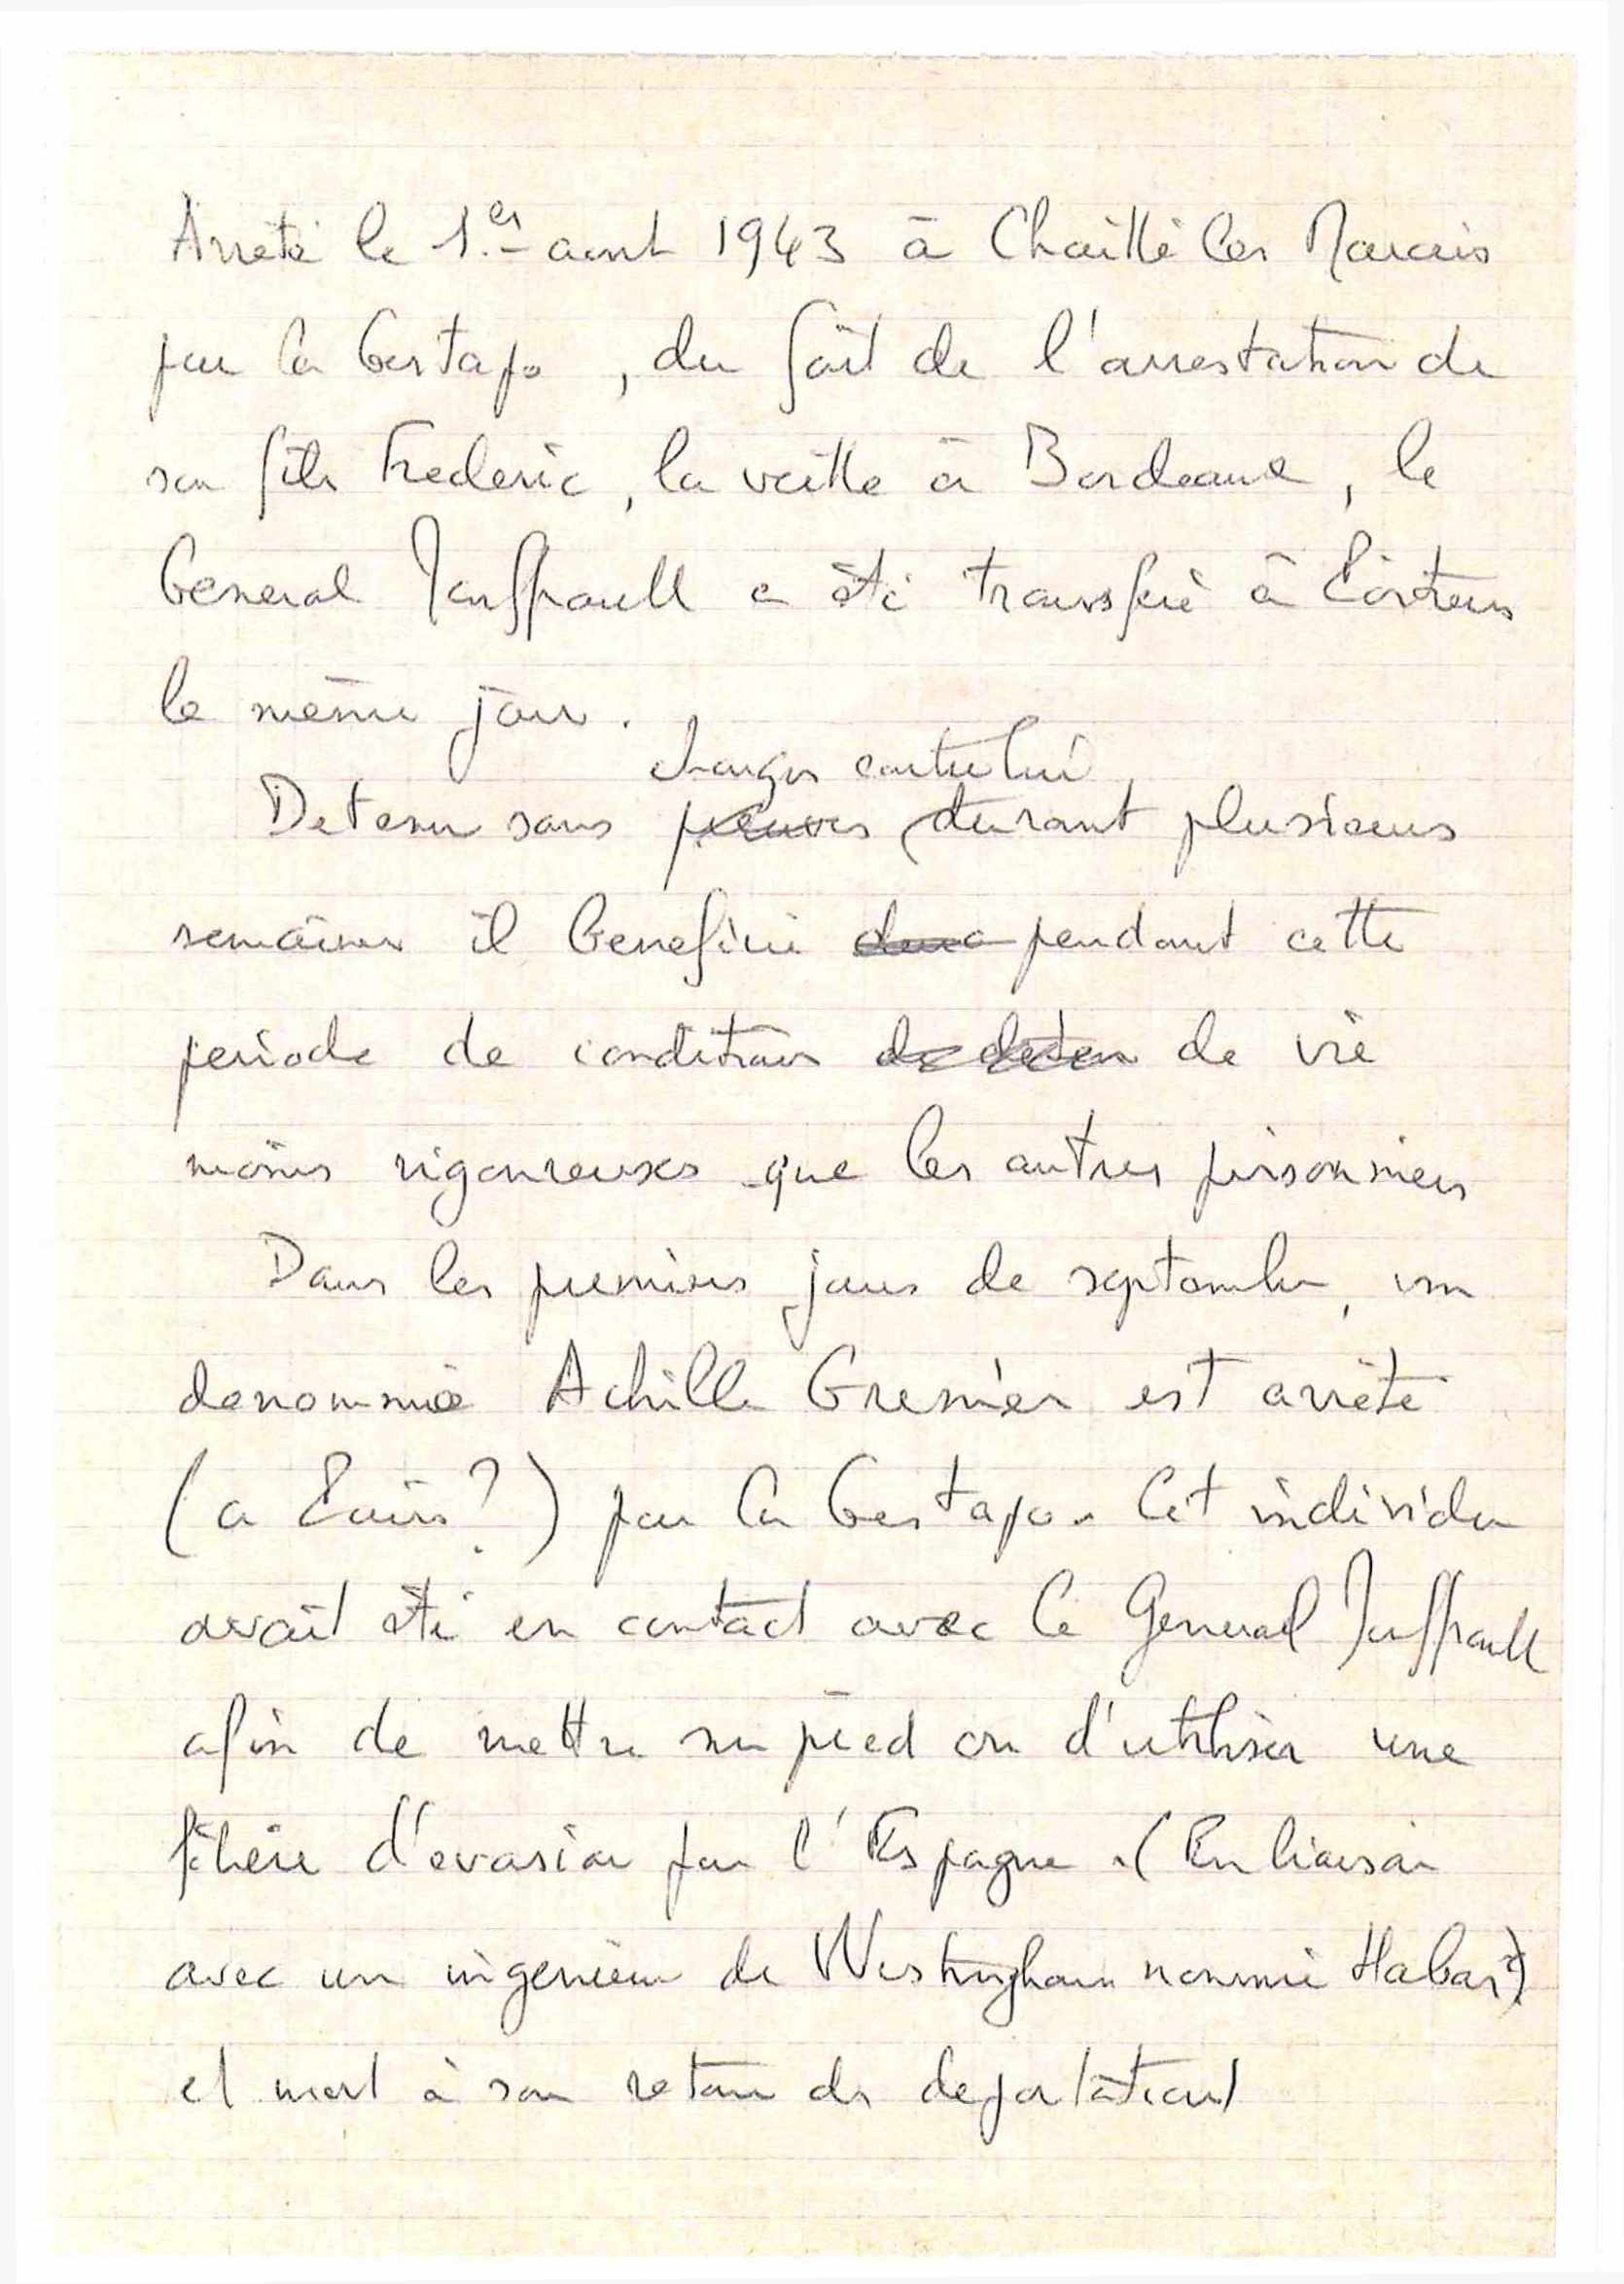 Arrêté le 1er août 1943 à Chaillé les Marais
par la Gestapo, du fait de l'arrestation de
son fils Frederic, la veille à Bordeaux, le
General Jouffrault a été transferé à
le même jour.
charges contre lui
Detenu sans preuves durant plusieurs
semaines il beneficie pendant cette
periode de conditions de deten de vie
moins rigoureuses que les autres prisonniers
Dans les premiers jours de septembre, un
denommé Achille Grenier est arrêté
(a ?) par la Gestapo. Cet individu
avait été en contact avec le General Jouffrault
afin de mettre sur pied ou d'utiliser une
filière d'evasion par l'Espagne. (En liaison
avec un ingenieur de Westinghouse nommé
et mort à son retour de deportation)